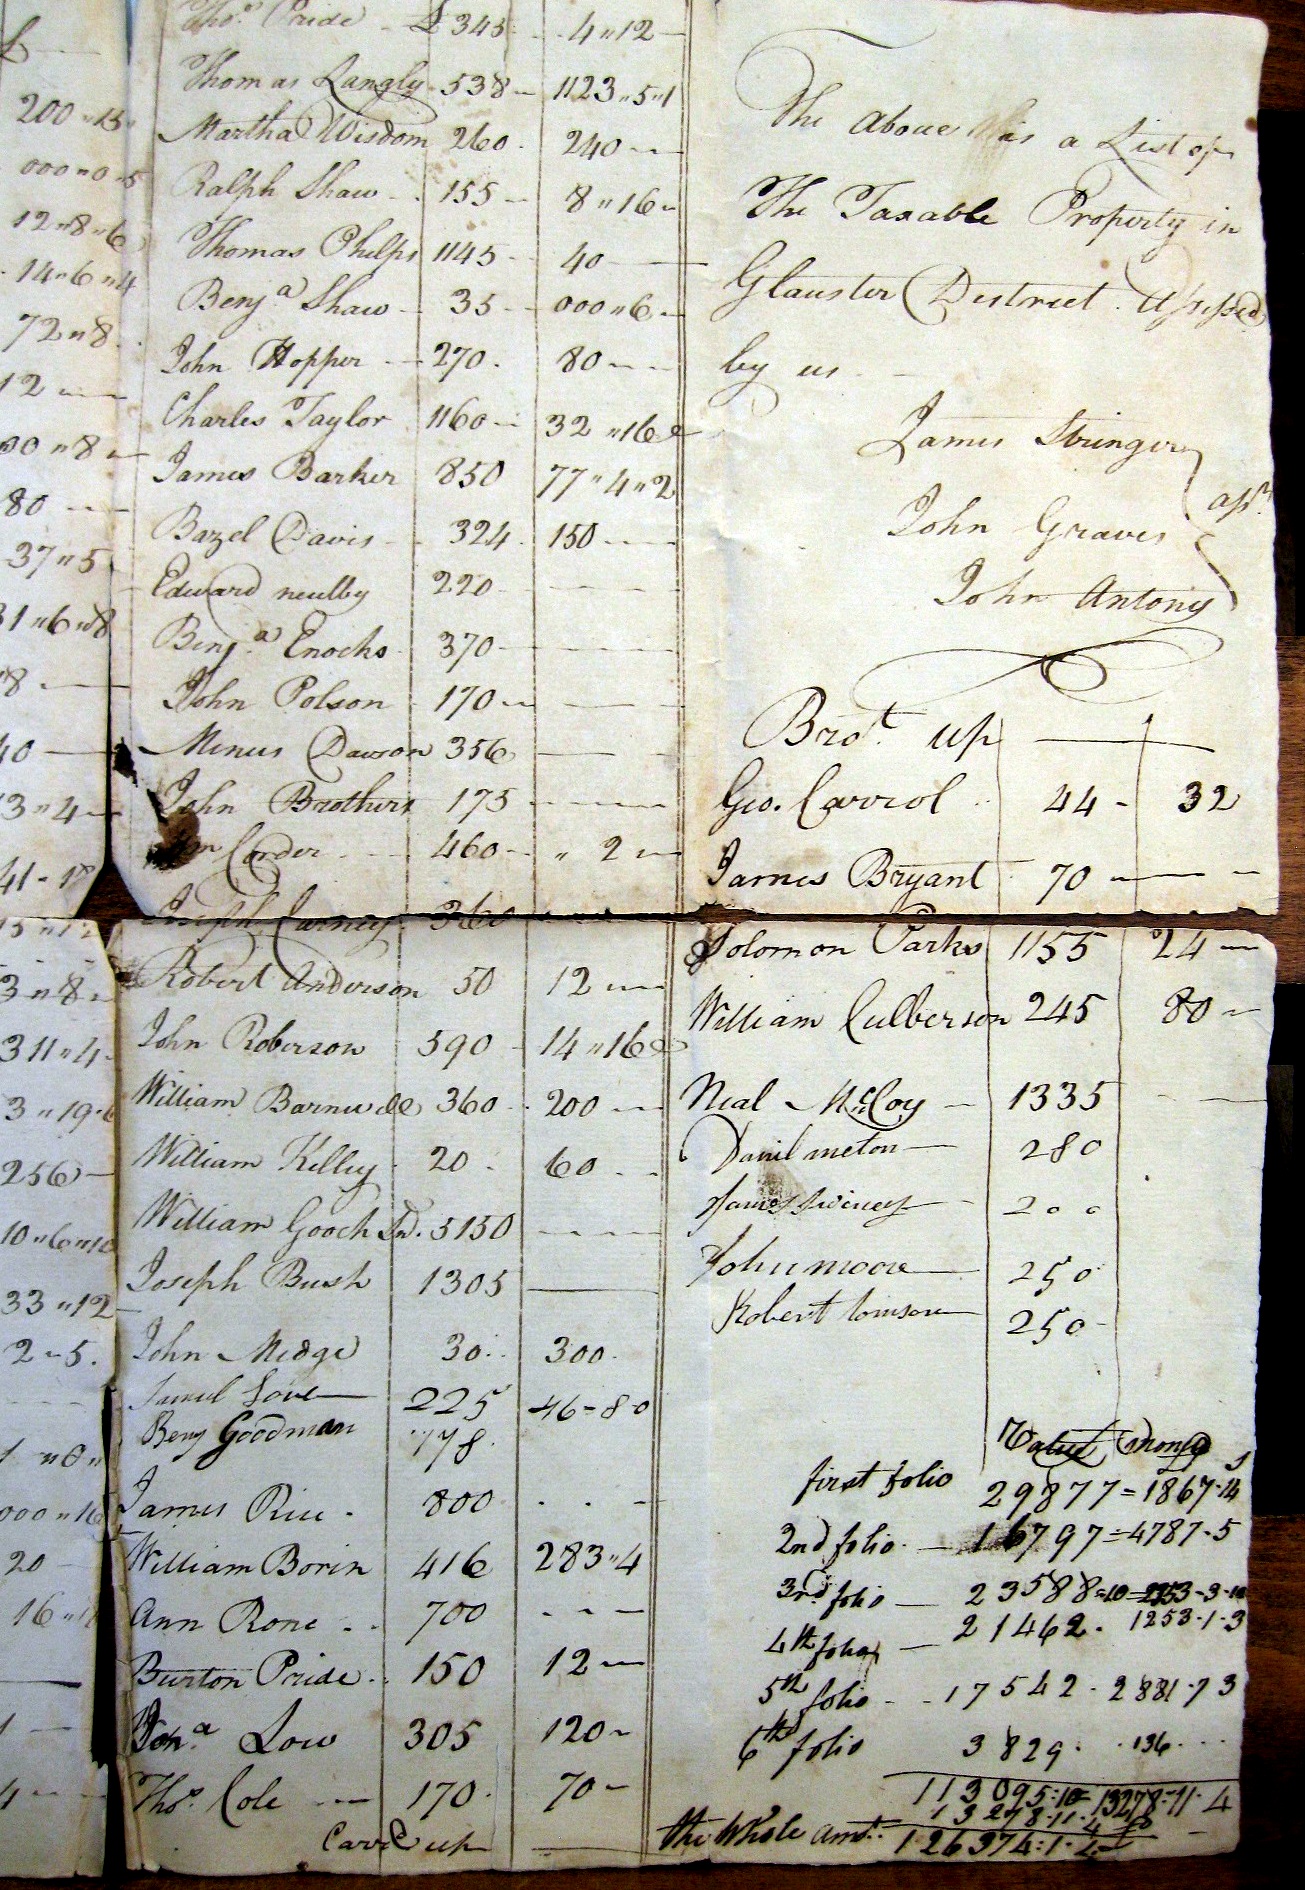 200〃15〃
000〃0〃5
12〃8〃6
14〃6〃4
72〃8
12
00〃8
80
37〃5
31〃6〃8
8
40
3〃4
41-18
3〃8
311〃4
3〃19-6
256
10〃6〃10
33〃12
2-5.
1〃0〃
000〃16
20
16〃11
Thos. Pride £ 345 4〃12
Thomas Langly 538 1123〃5〃1
Martha Wisdom 260 240
Ralph Shaw 155 8〃16
Thomas Phelps 1145 40
Benja Shaw 35 000〃6
John Hopper 270 80
Charles Taylor 1160 32〃16
James Barker 850 77〃4〃2
Bazel Davis 324 150
Edward neulby 220
Benja. Enochs 370
John Polson 170
Menus Dawson 356
John Brothers 175
Corder 460 〃 2
Joseph Jurney 360
Robert Anderson 50 12
John Roberson 590 14〃16
William Barnwell 360 200
William Killey 20 60
William Gooch Sr. 5150
Joseph Bush 1305
John Medge 30 300
Samul Love 225 46=8-0
Benj Goodman 778
James Rice 800
William Borin 416 283〃4
Ann Rone 700
Burton Pride 150 12
Jona. Low 305 120
Thos. Cole 170 70
Carrd up
The Above is a List of
The Taxable Property in
Glauster Destrect. Assessed
by us
James Stringer
John Graves assrs
John Antony
Brot. up
Geo. Carrol 44 32
James Bryant 70
Solomon Parks 1155 24
William Culberson 245 80
Neal McCoy 1335
Danil meton 280
James Swiney 200
John moore 250
Robert tomson 250
Value money
s
first folio 29877=1867-14
2nd folio 16797=4787-5
3rd folio 23588=10=2353-3-10
4th folio 21462. 1253-1-3
5th folio 17542. 2881-7 3
6th folio 3829. 136
113095:10=13278-11-4
13278-11-4
the Whole amt. 126374:1-4